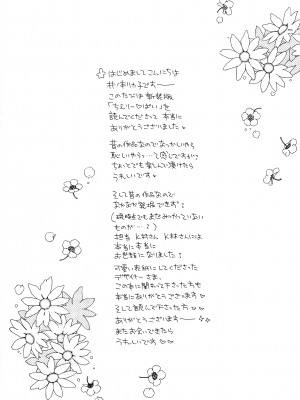 はじめまして こんにちは
このたびは 新装版
「ちぇりーっぱい」を
読んでくださって 本当に
ありがとうございました
昔の作品なので なつかしいやら
恥しいやら…って感じですが
ちょっとでも楽しんで頂けたら
うれしいです
そして昔の作品なので
担当 K村さん K林さんには
本当に本当に
お世話になりました!
可愛い表紙にしてくださった
デザイナーさま、
この本に関わって下さった方も
本当にありがとうございます
そして読んで下さった方
ありがとうございます――
またお会いできたら
うれしいです